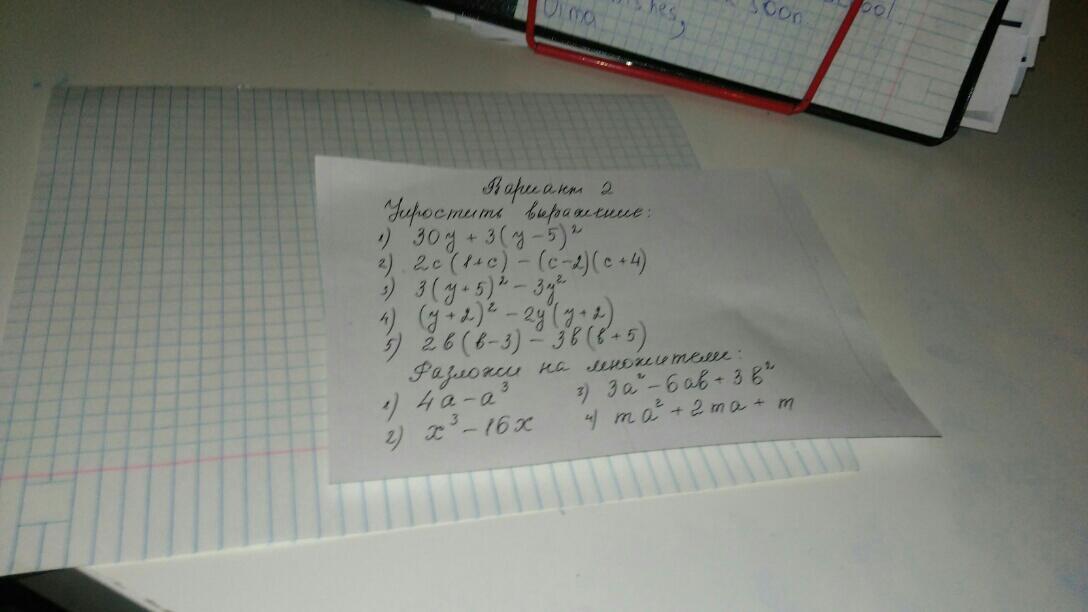 soon
Dima
Вариант 2
Упростить выражение:
1) 30y + 3(y-5)²
2) 2c(1+c) - (c-2)(c+4)
3) 3(y+5)² - 3y²
4) (y+2)² - 2y(y+2)
5) 2в(в-3) - 3в(в+5)
Разложи на множители:
1) 4a - a³ 3) 3a² - 6aв + 3в²
2) x³ - 16x 4) ma² + 2ma + m